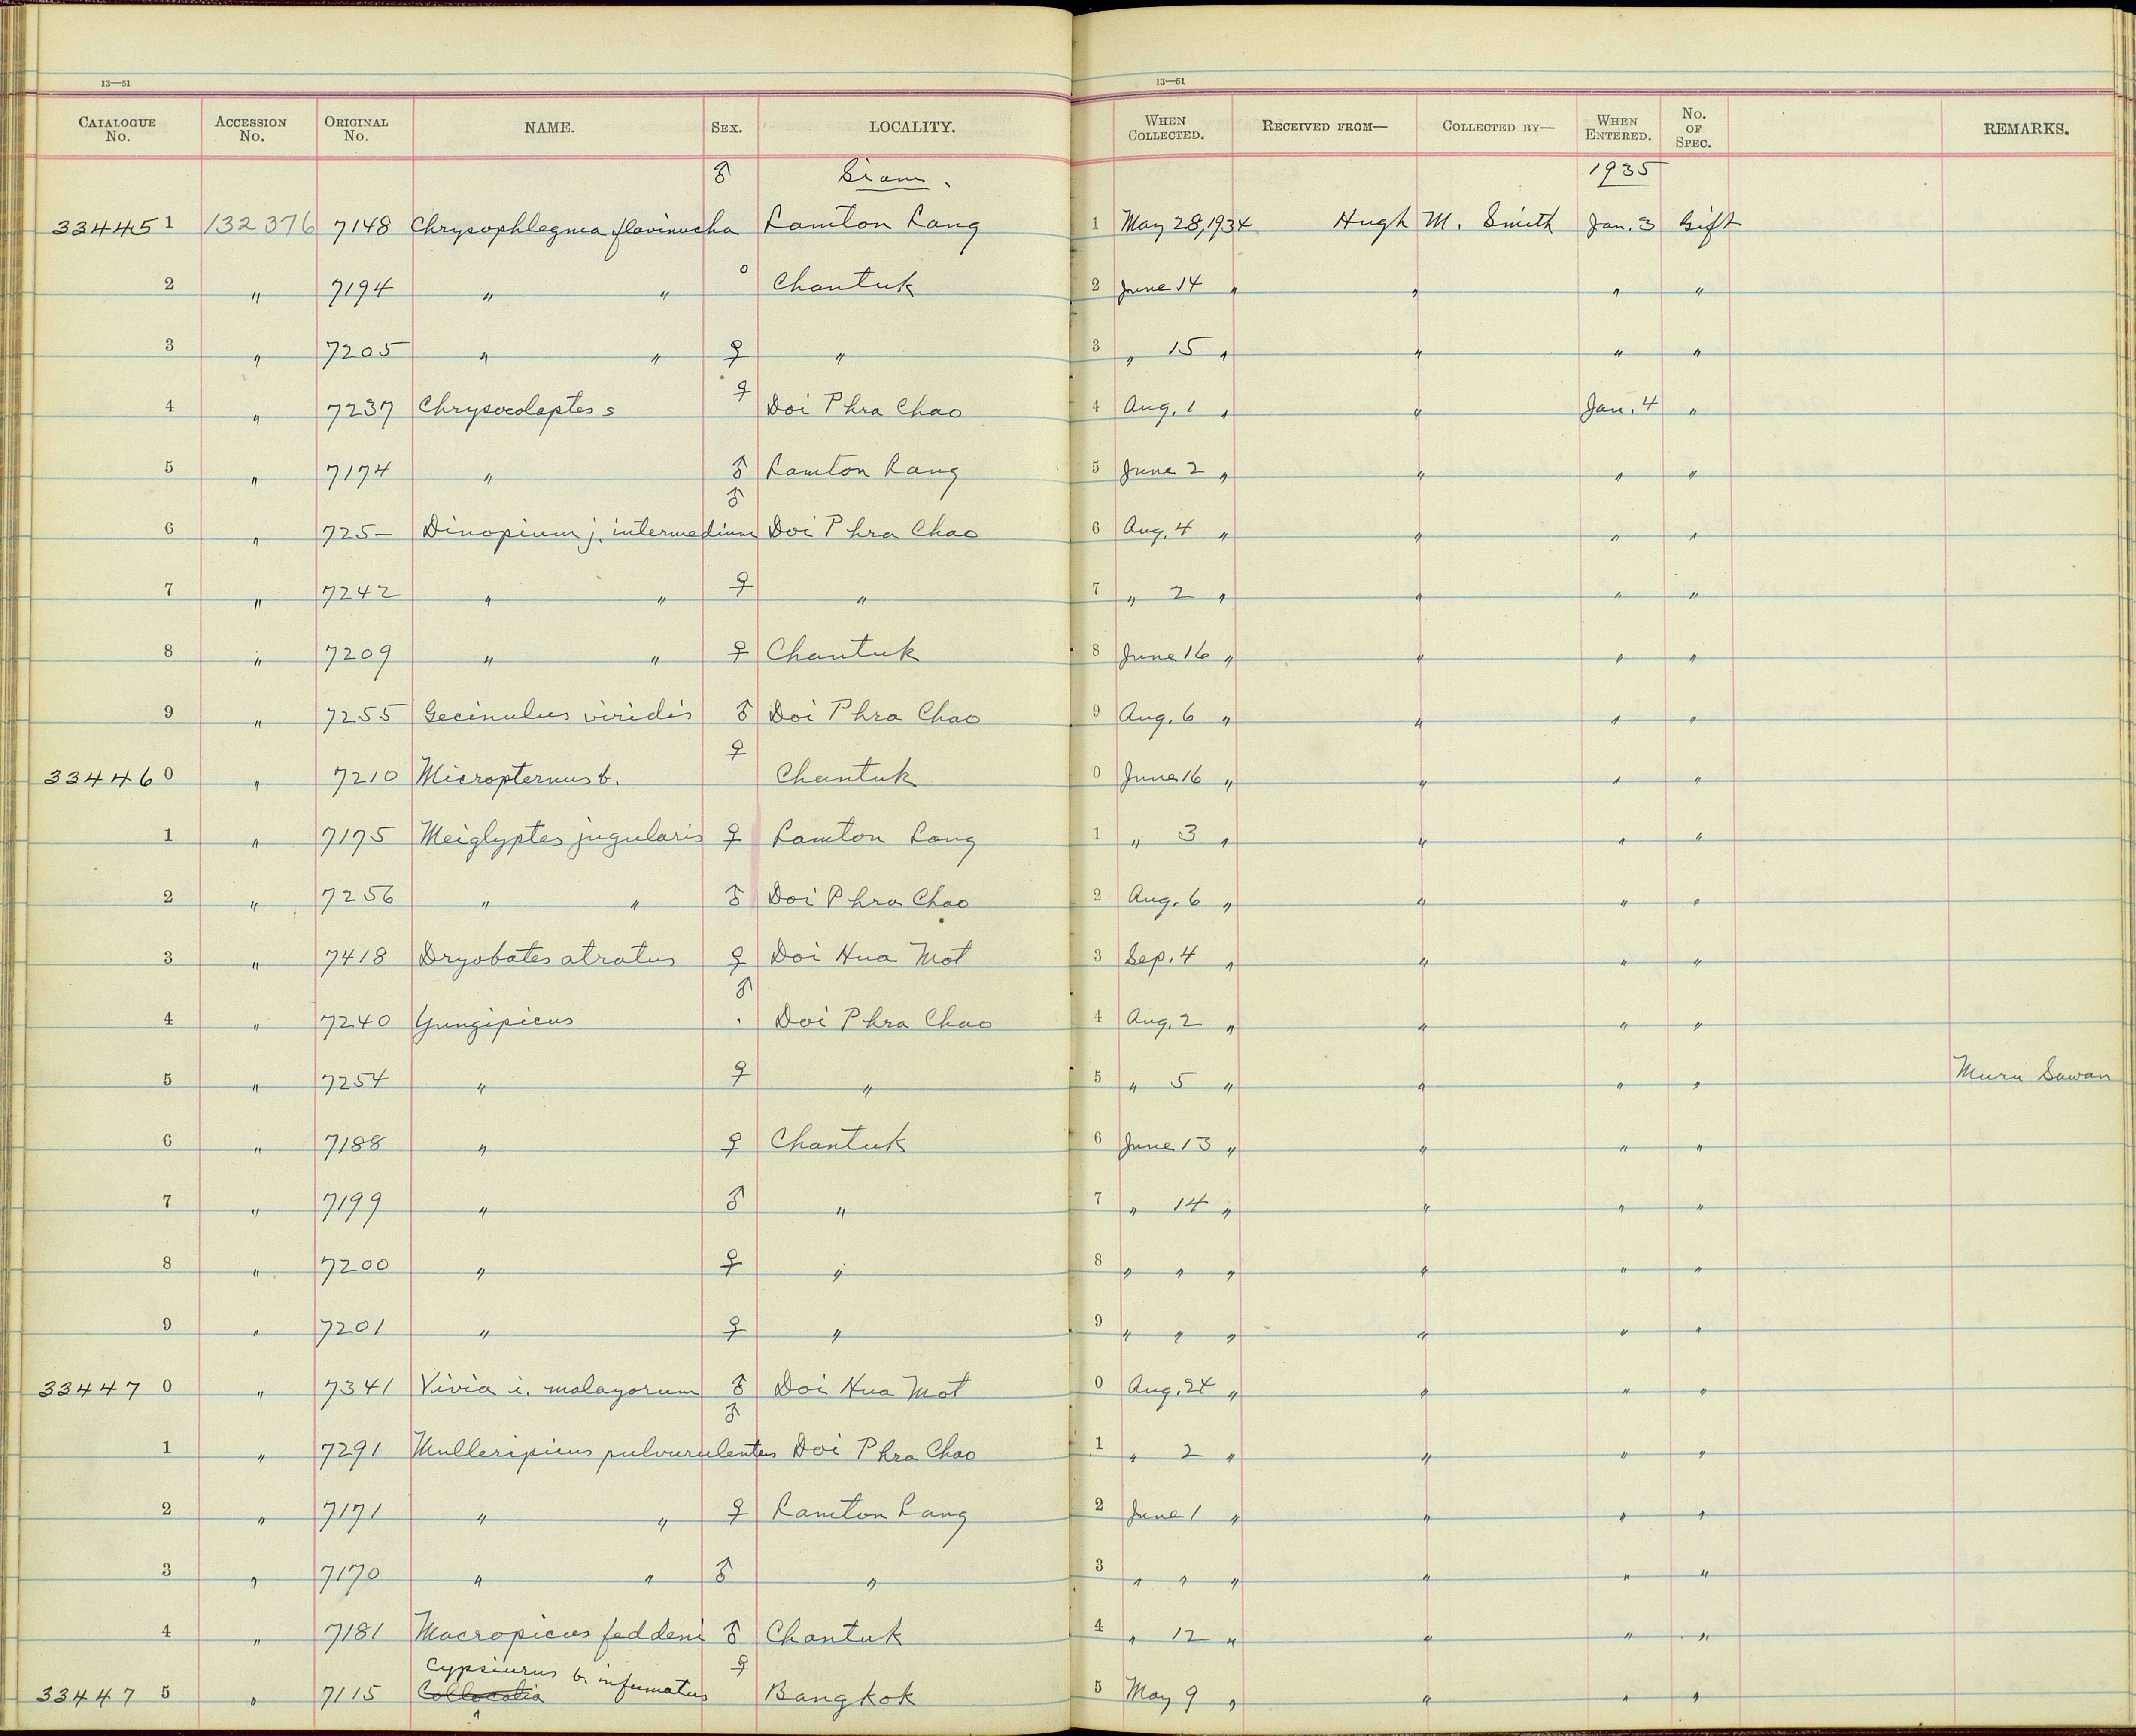 13—51 13—51
CATALOGUE No. ACCESSION No. ORIGINAL No. NAME. SEX. LOCALITY. WHEN COLLECTED. RECEIVED FROM— COLLECTED BY— WHEN ENTERED. No. OF SPEC. REMARKS.
♂ Siam. 1935
33445 1 132376 7148 Chrysophlegma flavinucha Lamton Lang 1 May 28, 1934 Hugh M. Smith Jan. 3 Gift
2 " 7194 " " o Chantuk 2 June 14 " " " "
3 " 7205 " " ♀ " 3 " 15 " " " "
4 " 7237 Chrysocolaptes s ♀ Doi Phra Chao 4 Aug. 1 " " Jan. 4 "
5 " 7174 " ♂ Lamton Lang 5 June 2 " " " "
6 " 725– Dinopium j. intermedium ♂ Doi Phra Chao 6 Aug. 4 " " " "
7 " 7242 " " ♀ " 7 " 2 " " " "
8 " 7209 " " ♀ Chantuk 8 June 16 " " " "
9 " 7255 Gecinulus viridis ♂ Doi Phra Chao 9 Aug. 6 " " " "
33446 0 " 7210 Micropternus b. ♀ Chantuk 0 June 16 " " " "
1 " 7175 Meiglyptes jugularis ♀ Lamton Lang 1 " 3 " " " "
2 " 7256 " " ♂ Doi Phra Chao 2 Aug. 6 " " " "
3 " 7418 Dryobates atratus ♀ Doi Hua Mot 3 Sep. 4 " " " "
4 " 7240 Yungipicus ♂ Doi Phra Chao 4 Aug. 2 " " " "
5 " 7254 " ♀ " 5 " 5 " " " " Muru Sawan
6 " 7188 " ♀ Chantuk 6 June 13 " " " "
7 " 7199 " ♂ " 7 " 14 " " " "
8 " 7200 " ♀ " 8 " " " " " "
9 " 7201 " ♀ " 9 " " " " " "
33447 0 " 7341 Vivia i. malayorum ♂ Doi Hua Mot 0 Aug. 24 " " " "
1 " 7291 Mulleripicus pulverulentus ♂ Doi Phra Chao 1 " 2 " " " "
2 " 7171 " " ♀ Lamton Lang 2 June 1 " " " "
3 " 7170 " " ♂ " 3 " " " " " "
4 " 7181 Macropicus feddeni ♂ Chantuk 4 " 12 " " " "
Cypsiurus b. infumatus ♀
33447 5 " 7115 Collocalia Bangkok 5 May 9 " " " "